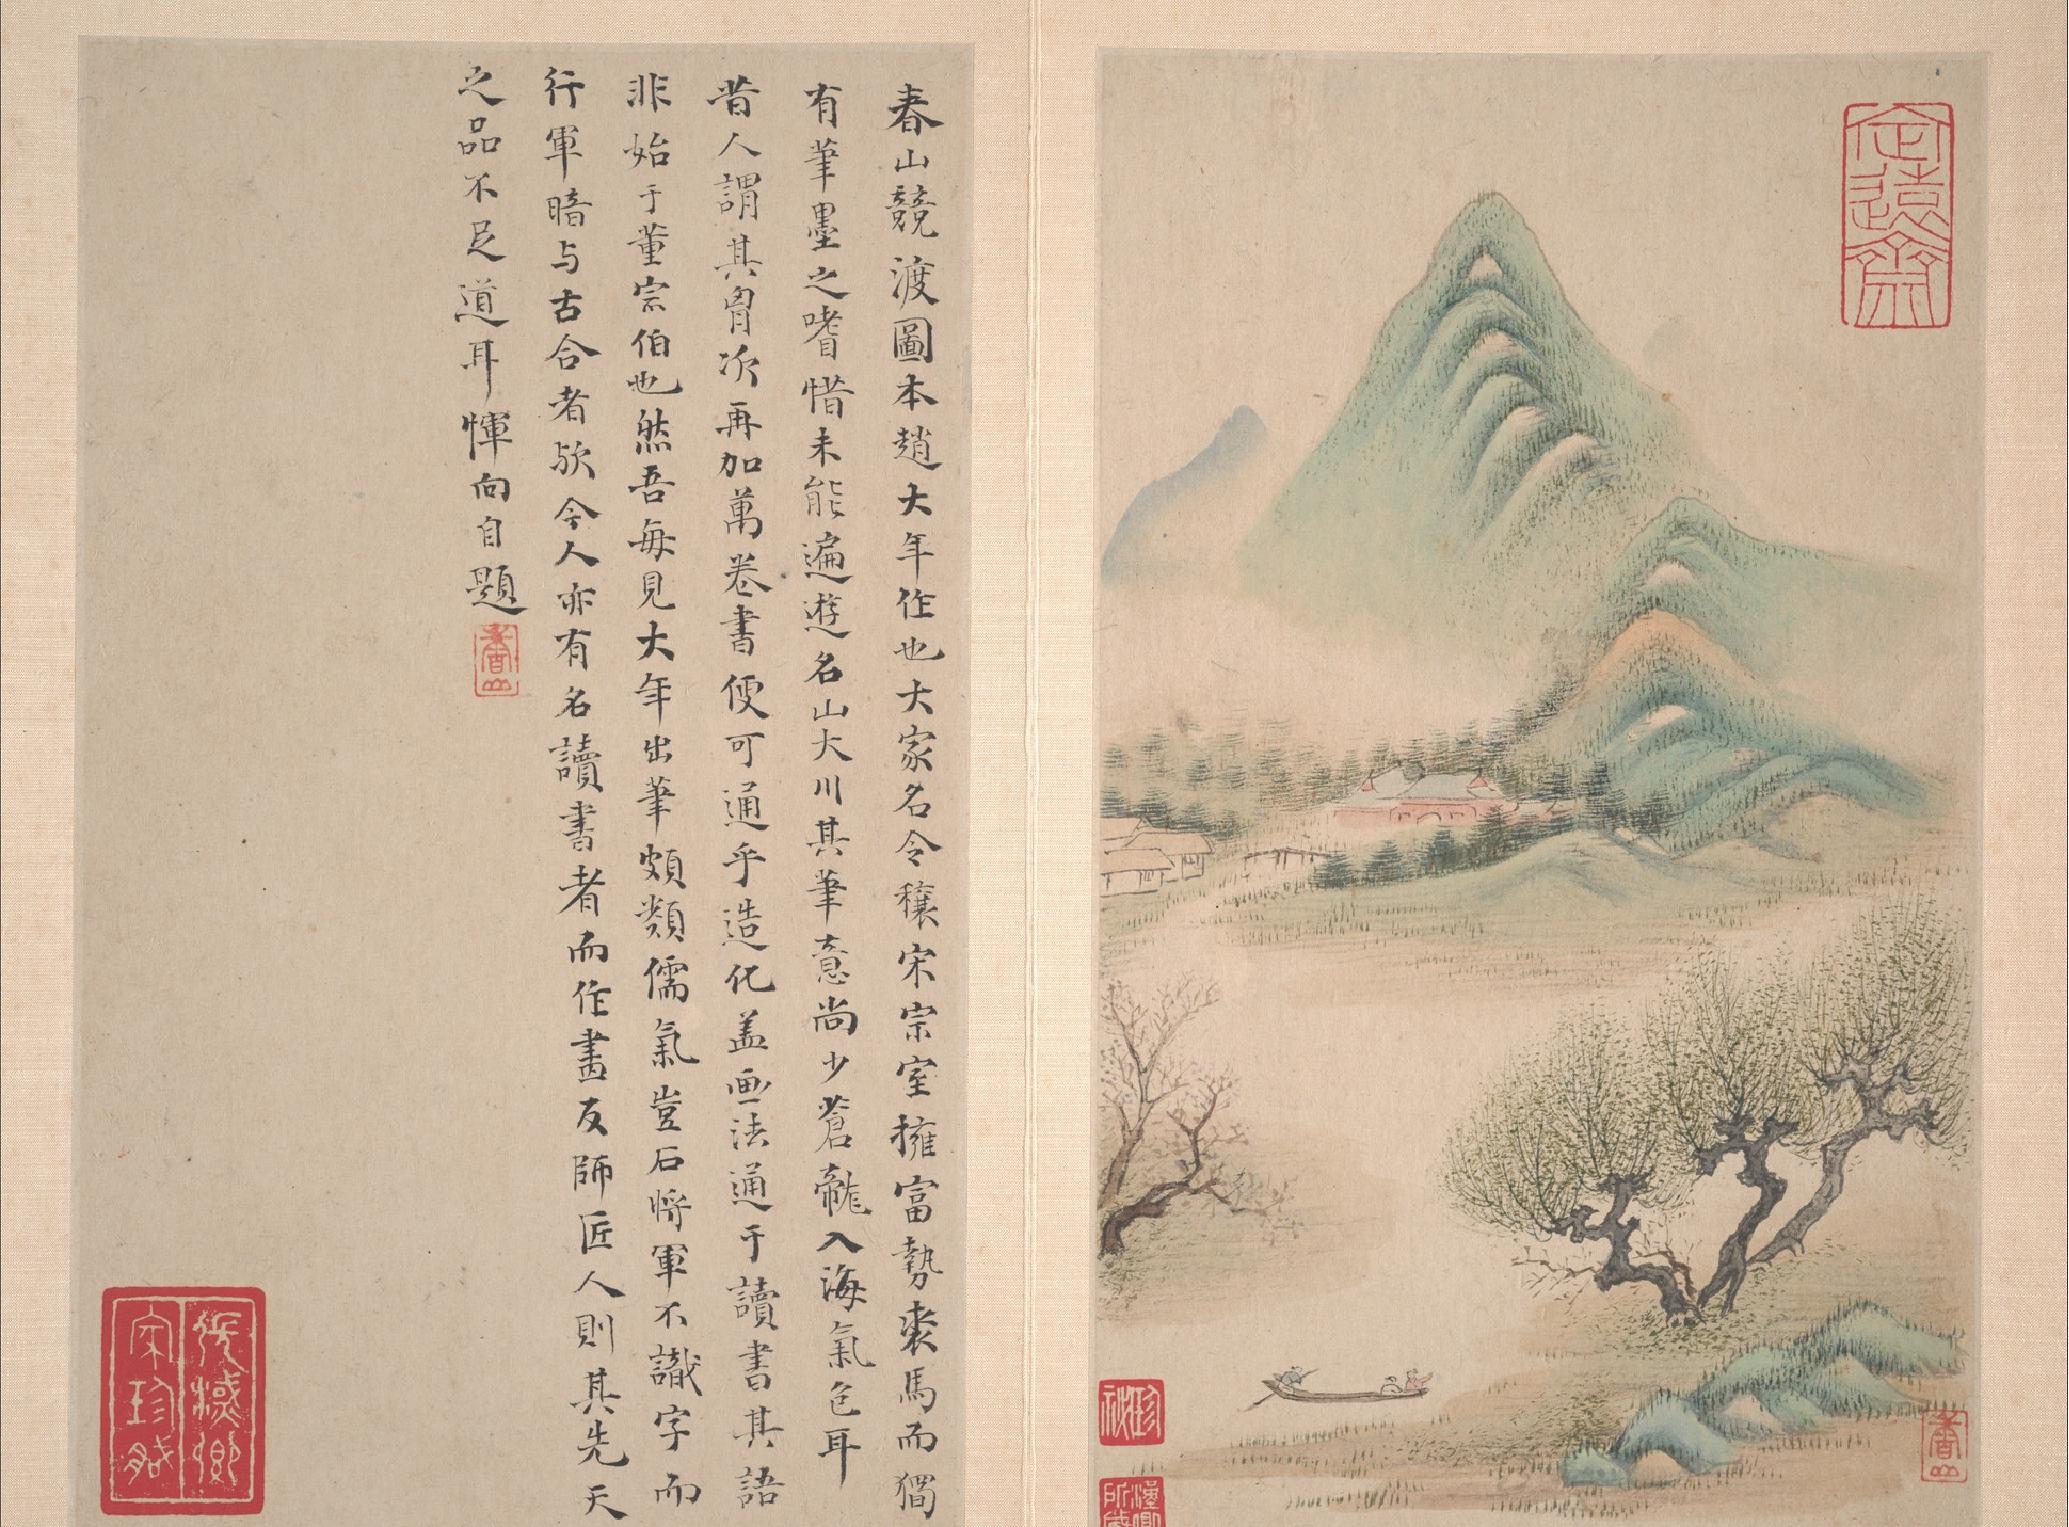 春山競渡圖本趙大年作也大家名令穰宋宗室擁富勢裘馬而獨
有筆墨之嗜惜未能遍遊名山大川其筆意尚少蒼龍入海氣色耳
昔人謂其胷次再加萬卷書便可通乎造化盖画法通于讀書其語
非始于董宗伯也然吾每見大年出筆頗類儒氣豈石將軍不識字而
行軍暗与古合者欤今人亦有名讀書者而作畫反師匠人則其先天
之品不足道耳惲向自題
香山
張漢卿
家珍藏
定遠齋
香山
珍祕
漢卿
所藏